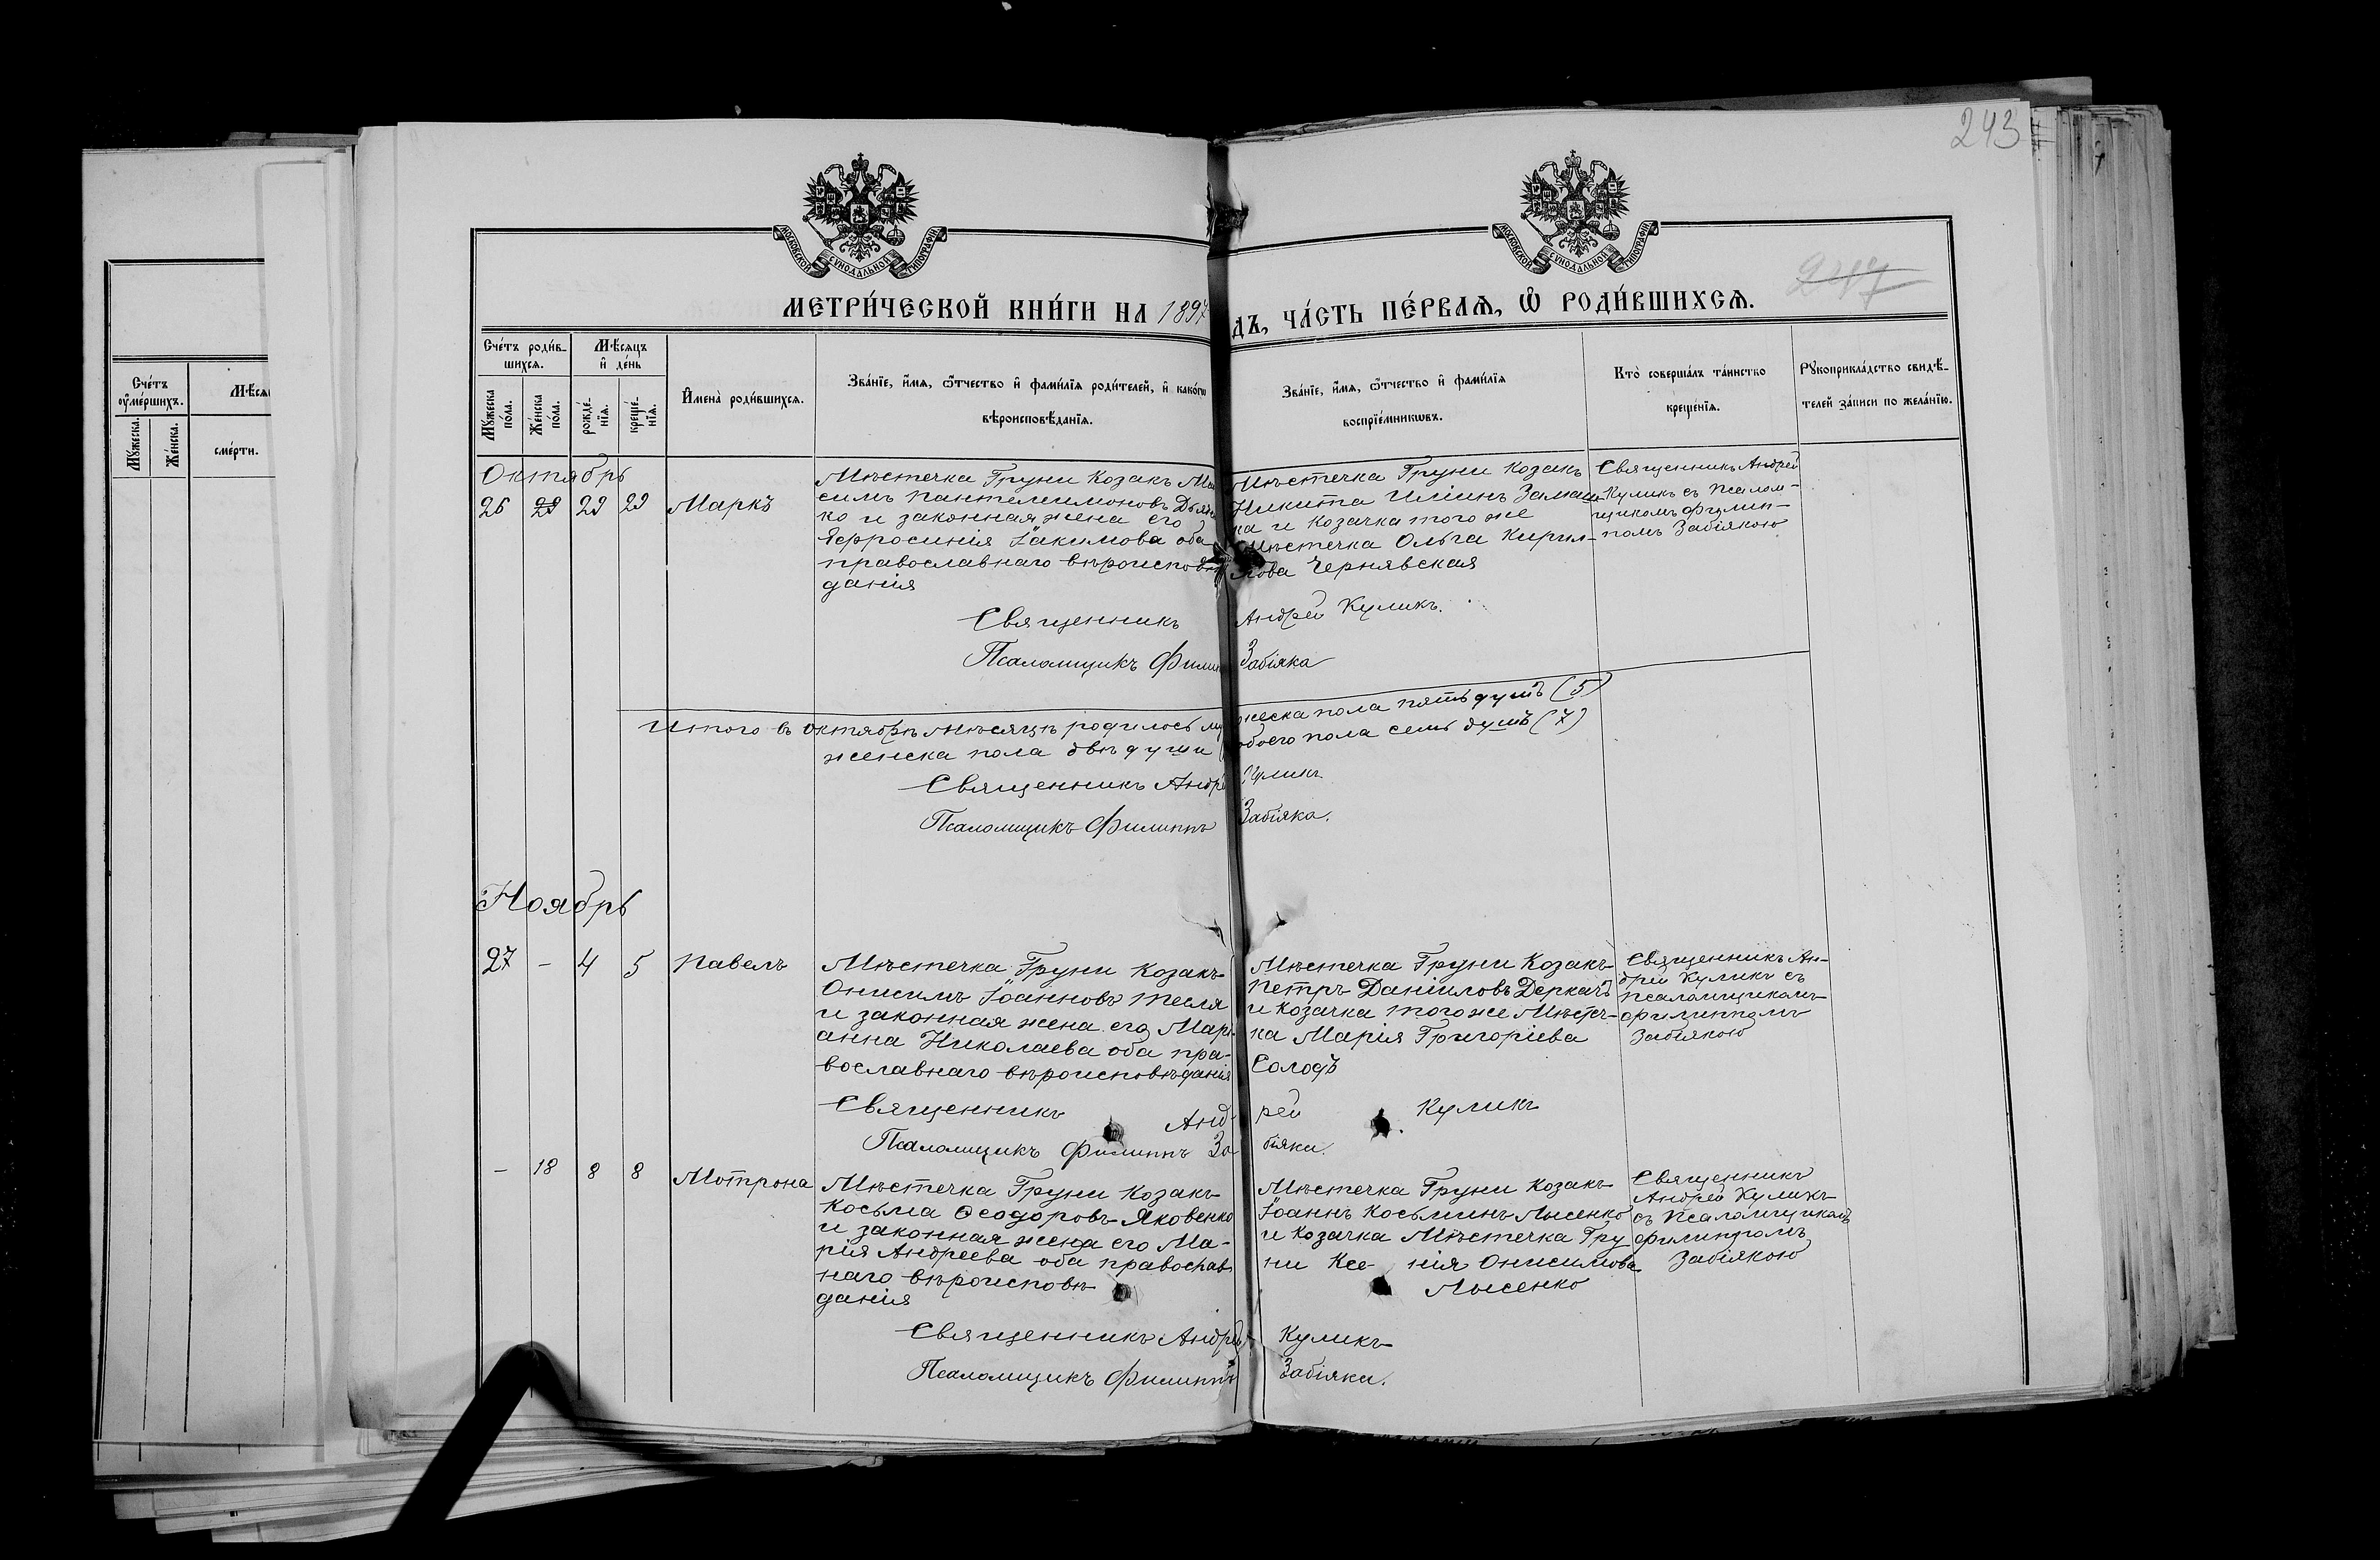 243
МОСКОВСКОЙ СѴНОДАЛЬНОЙ ТИПОГРАФІИ
МОСКОВСКОЙ СѴНОДАЛЬНОЙ ТИПОГРАФІИ
247
МЕТРИ́ЧЕСКОЙ КНИ́ГИ НА 1897
ДЪ, ЧА́СТЬ ПЕ́РВАѦ, Ѡ РОДИ́ВШИХСѦ.
Сче́тъ
оумéршихъ.
Мужеска.
Же́нска.
сме́рти.
Сче́тъ роди́в-
шихсѧ.
Мѣ́сѧцъ
и де́нь
Мужеска по́ла.
Же́нска по́ла.
рожде́-нїѧ.
креще́-нїѧ.
Имена̀ роди́вшихсѧ.
Зва́нїе, и́мѧ, ѻ҆́тчество и фами́лїѧ роди́телей, и како́гѡ
вѣроисповѣ́данїѧ.
Зва́нїе, и́мѧ, ѻ҆́тчество и фами́лїѧ
воспрїе́мникѡвъ.
Кто̀ соверша́лъ та́инство
креще́нїѧ.
Рукоприкла́дство свидѣ́-
телей за́писи по жела́нїю.
Октябрь
26 29 29 Маркъ
Мѣстечка Груни Козакъ
симъ Пантелеимоновъ
ко и законная жена его
Ефросинія Іакимова оба
православнаго вѣроисповѣ
данія
Мѣстечка Груни Козакъ
Никита Иліинъ
ка и Козачка того же
Мѣстечка Ольга Кирил-
лова Чернявская
Священникъ Андрей
Куликъ съ Псалом-
щикомъ Филип-
помъ Забіякою
Священникъ Андрей Куликъ.
Псаломщикъ Филип Забіяка
Итого въ октябрѣ мѣсяцѣ родилось му жеска пола пять душъ (5)
женска пола двѣ души обоего пола семь душъ (7)
Священникъ Андре Куликъ
Псаломщикъ Филиппъ Забіяка.
Ноябрь
27 – 4 5 Павелъ
Мѣстечка Груни Козакъ
Онисимъ Іоанновъ Тесля
и законная жена его Марі-
анна Николаева оба пра-
вославнаго вѣроисповѣданія
Мѣстечка Груни Козакъ
Петръ Даніиловъ Деркачъ
и Козачка того же Мѣстеч-
ка Марія Григоріева
Солодъ
Священникъ Ан-
дрей Куликъ съ
Псаломщикомъ
Филиппомъ
Забіякою
Священникъ Анд- рей Куликъ
Псаломщикъ Филиппъ За бiяка.
– 18 8 8 Мотрона
Мѣстечка Груни Козакъ
Косьма Ѳеодоровъ Яковенко
и законная жена его Ма-
рія Андреева оба православ
наго вѣроисповѣ
данія
Мѣстечка Груни Козакъ
Іоаннъ Косьминъ Лысенко
и Козачка Мѣстечка Гру
ни Ксе- нія Онисимова
Лысенко
Священникъ
Андрей Куликъ
съ Псаломщикомъ
Филиппомъ
Забіякою
Священникъ Андрей Куликъ
Псаломщикъ Филиппъ Забіяка.